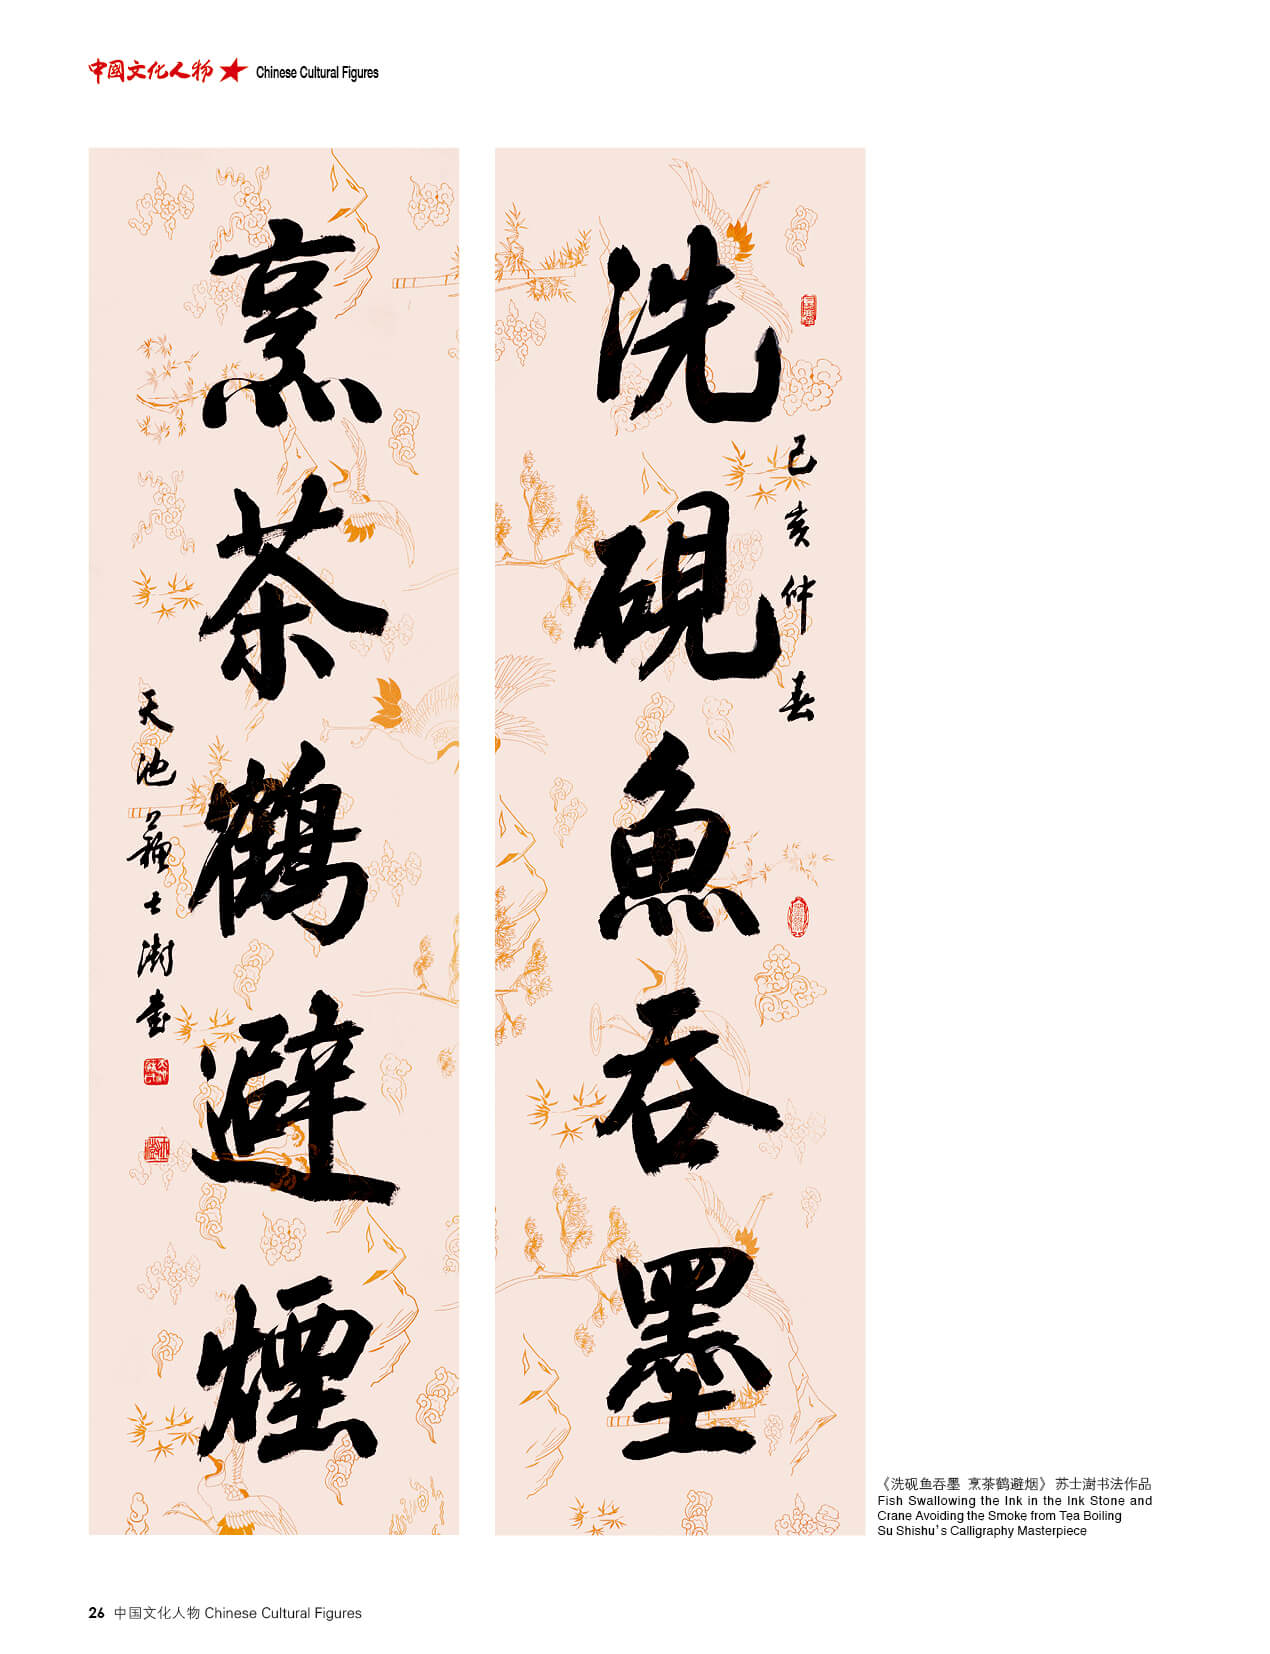 中國文化人物 Chinese Cultural Figures
洗硯魚吞墨
己亥仲春
烹茶鶴避煙
天池蘇士澍書
《洗砚鱼吞墨 烹茶鹤避烟》 苏士澍书法作品
Fish Swallowing the Ink in the Ink Stone and
Crane Avoiding the Smoke from Tea Boiling
Su Shishu's Calligraphy Masterpiece
26 中国文化人物 Chinese Cultural Figures